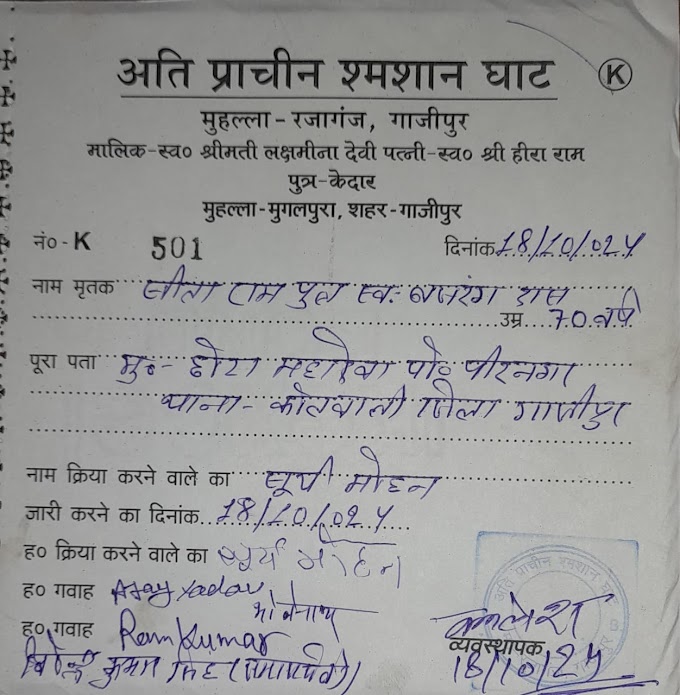 अति प्राचीन श्मशान घाट K
मुहल्ला-रजागंज, गाजीपुर
मालिक-स्व० श्रीमती लक्षमीना देवी पत्नी-स्व० श्री हीरा राम
पुत्र-केदार
मुहल्ला-मुगलपुरा, शहर-गाजीपुर
नं०-K 501 दिनांक 18/10/024
नाम मृतक सीता राम पुत्र स्व. बजरंग दास
उम्र 70 वर्ष
पूरा पता मु०- छोटा महादेवा पो० पीरनगर
थाना- कोतवाली जिला गाजीपुर
नाम क्रिया करने वाले का सूर्य मोहन
जारी करने का दिनांक 18/10/024
ह० क्रिया करने वाले का सूर्य मोहन
ह० गवाह Ajay Yadav
ह० गवाह Ram Kumar
कुमार सिंह
कमलेश
व्यवस्थापक
18/10/24
अति प्राचीन श्मशान घाट